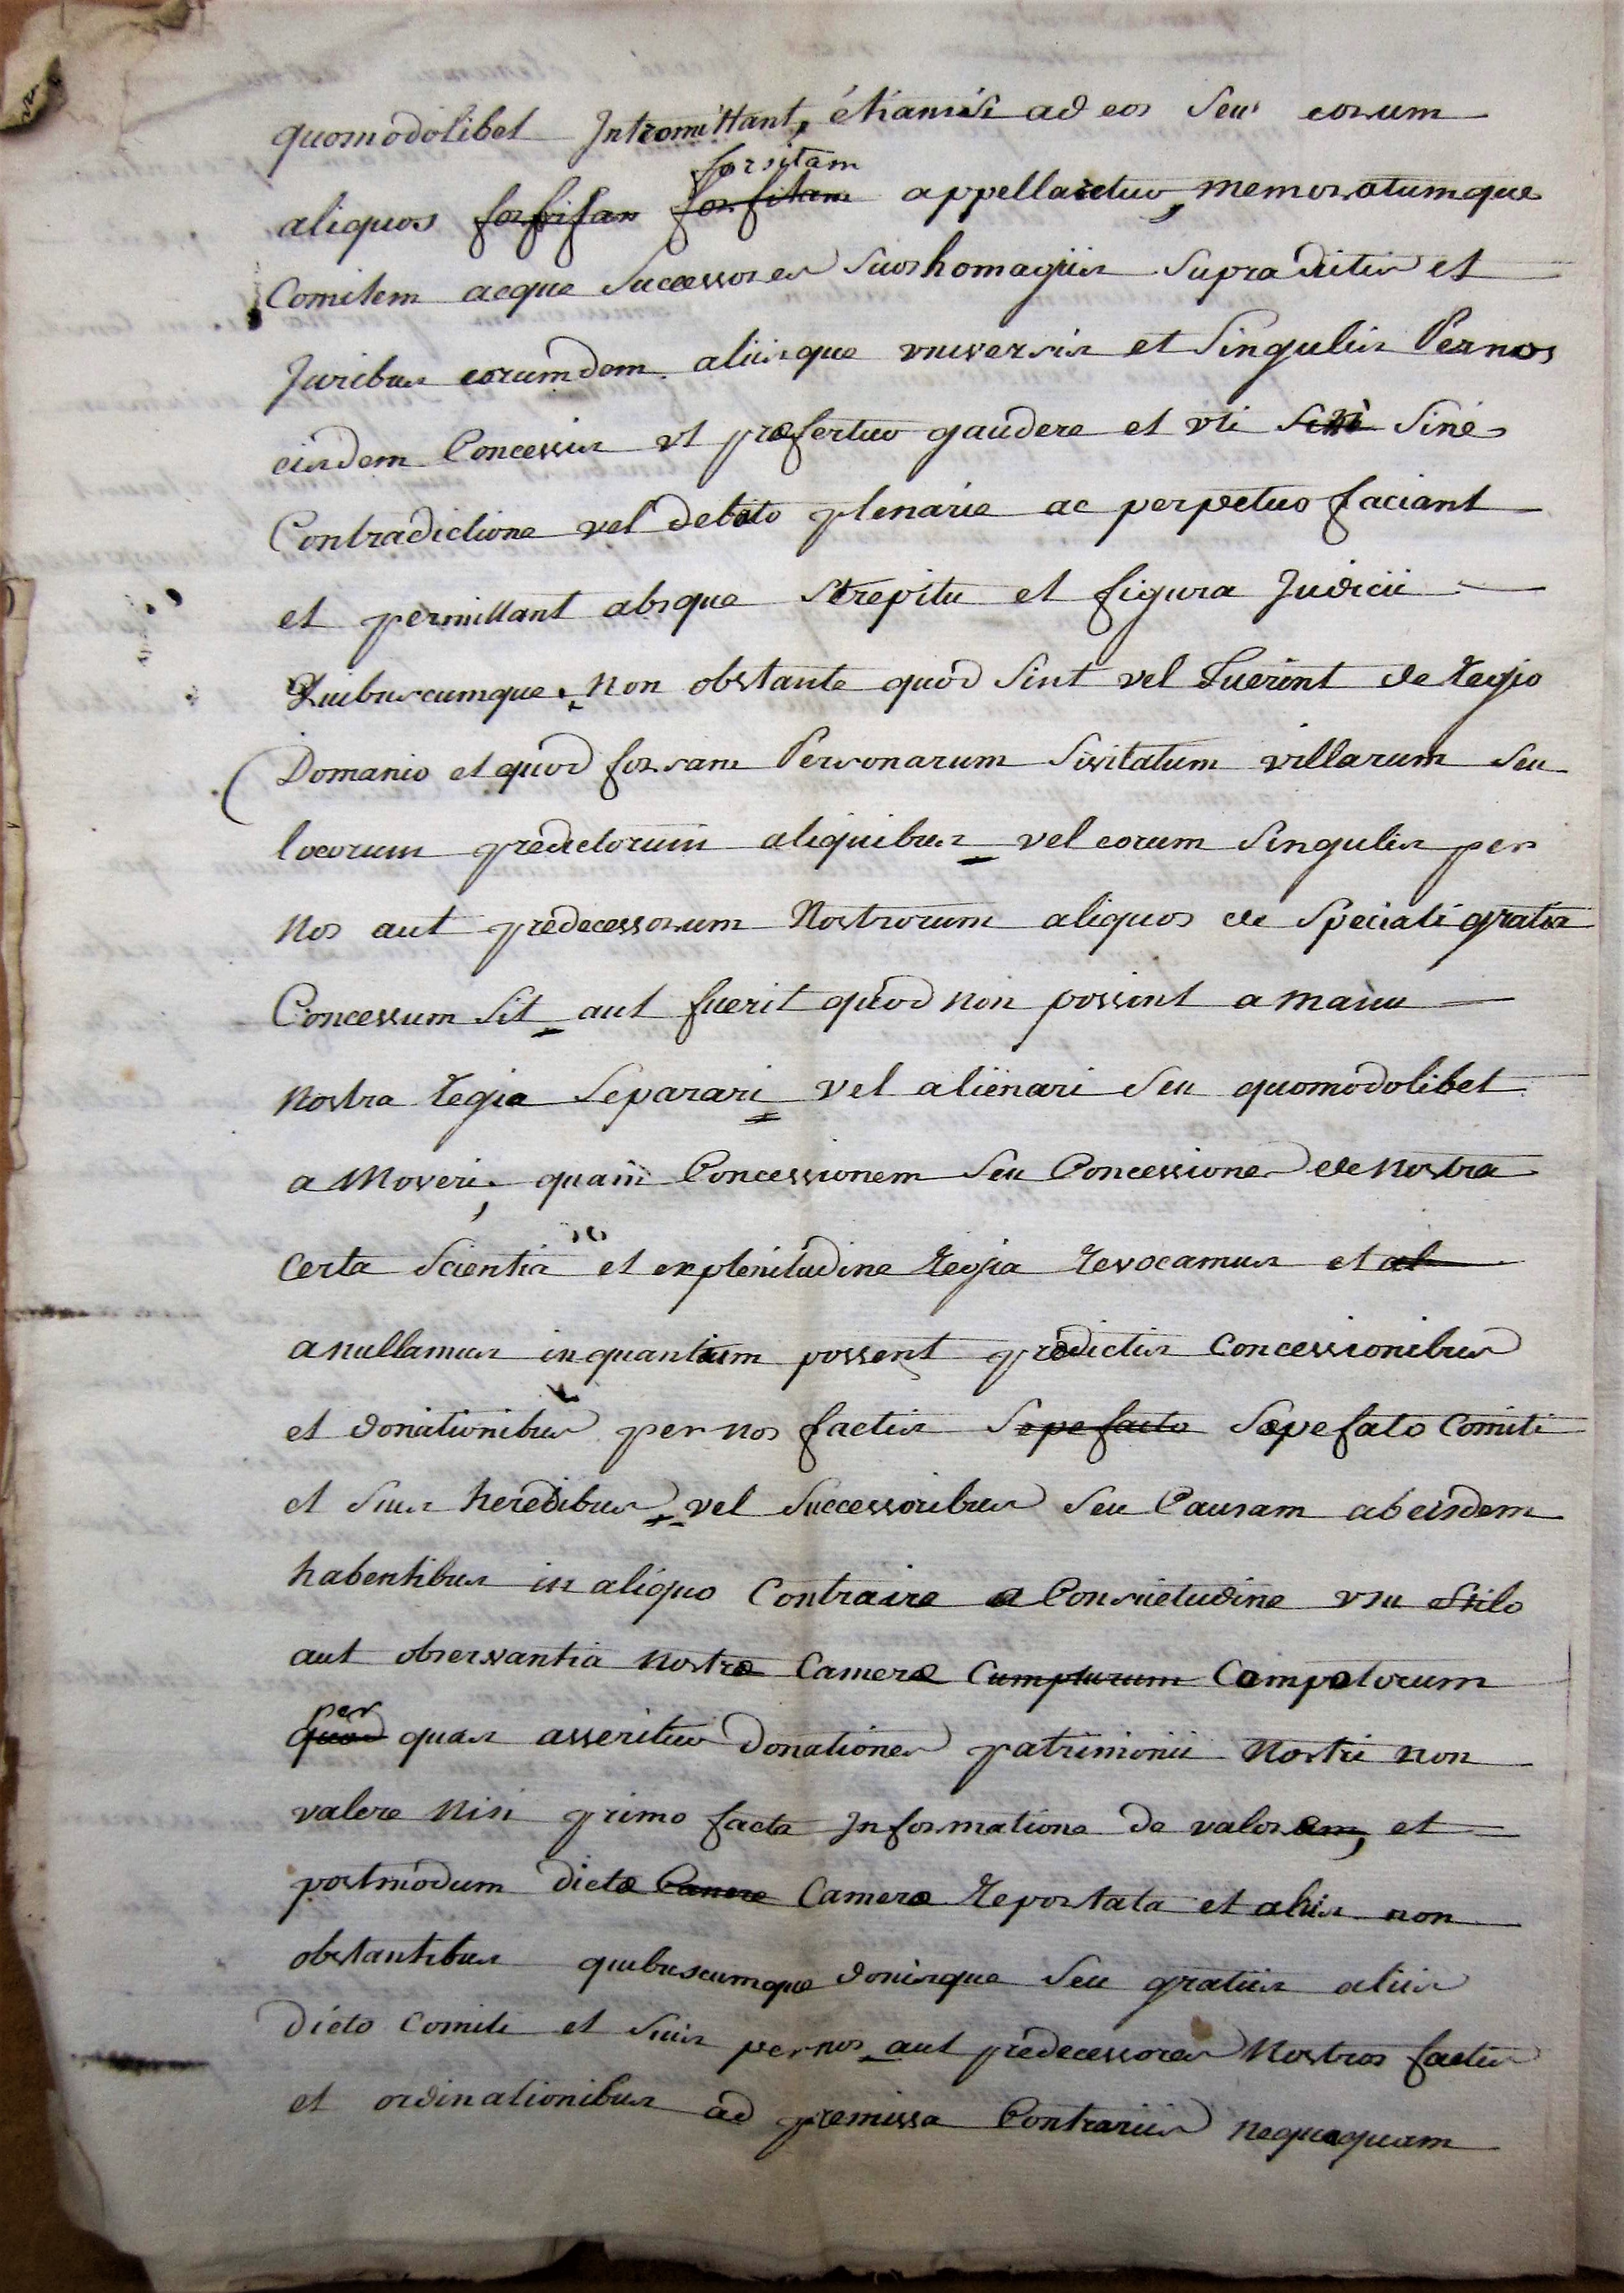 quomodolibet Intromittant, étiamsi ad eos seu eorum
forsitam
aliquos forsisan forsitam appellaretur, memoratumque
Comitem acque successores suos homagiis supradictis et
Juribus eorumdem aliisque universis et singulis Per nos
eisdem Concessis ut præfertur gaudere et uti sine sine
Contradictione vel debato plenarie ac perpetuo faciant
et permittant absque strepitu et figura Judicii
Quibuscumque. non obstante quod sint vel fuerint de regio
Domanio et quod forsam Personarum sivitatum villarum seu
locorum predictorum aliquibus vel eorum singulis per
nos aut predecessorum nostrorum aliquos de speciali gratia
Concessum sit aut fuerit quod non possint a manu
nostra regia separari vel aliénari seu quomodolibet
a moveri, quam Concessionem seu Concessiones de nostra
certa scientia et explenitudine regia revocamus et al
anullamus inquantum possent predictis concessionibus
et donationibus per nos factis sepefacto sæpefato Comiti
et suis heredibus vel successoribus seu Causam ab eisdem
habentibus in aliquo contraire a Consuetudine usu stilo
aut observantia nostræ Cameræ Cumpturum Compotorum
per
quod quas asseritur donationes patrimonii nostri non
valere nisi primo facta Informatione de valorem, et
postmodum dictæ Canere Cameræ reportata et aliis non
obstantibus quibuscumque donisque seu gratiis aliis
dicto Comiti et suis per nos aut predecessores nostros factis
et ordinationibus ad premissa Contrariis nequaquam